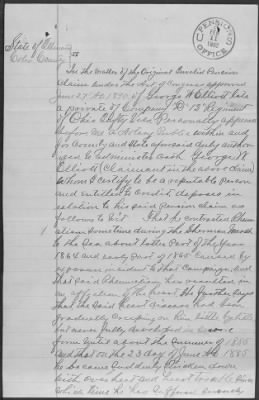 U.S. PENSION
OFFICE
1892
State of Illinois
Coles County
SS
In the Matter of the Original Invalid Pension
Claim under the Act of Congress approved
June 27th AD 1890 of George W Elliott late
a private of Company D 13th Regiment
of Ohio Vols Personally appeared
before me a Notary Public within and
for County and State aforesaid duly authorized
to administer oath George W
Elliott (Claimant in the above Claim)
Whom I certify to be a reputable person
and entitled to credit, deposes in
relation to his said pension claim as
follows to wit That he contracted Rheumatism
sometime during the Sherman March
to the Sea about latter Part of the year
1864 and early Part of 1865 caused by
exposure incident to that Campaign and
that said Rheumatism has resulted in
an affection of the heart. He further says
that the said Heart disease had been
gradually creeping on him little by little
but never fully developed in
form until about the Summer of 1885
and that on the 23 day of June AD 1885
he became suddenly stricken down
with over heat and heart trouble Since
which time he has suffered severely